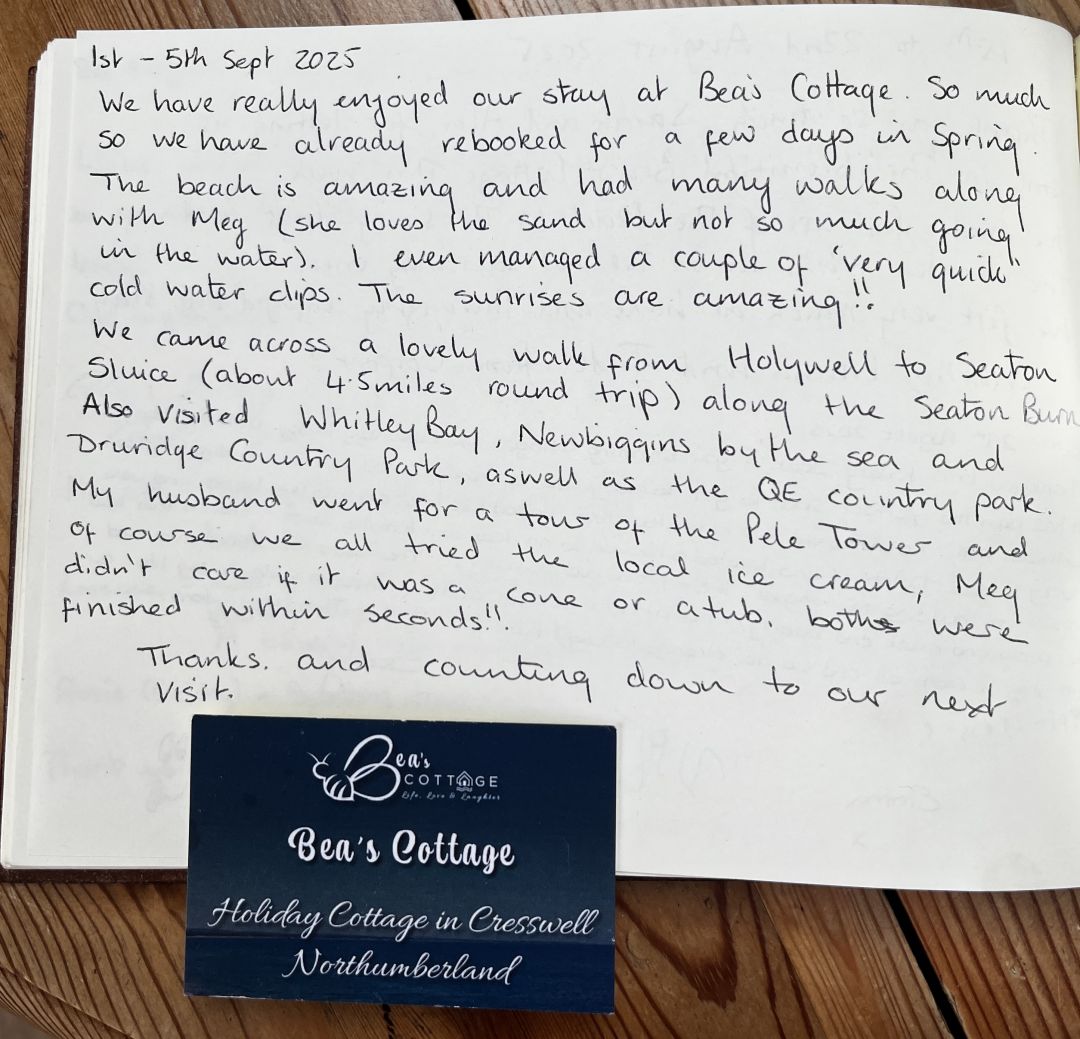 1st - 5th Sept 2025
We have really enjoyed our stay at Bea's Cottage. So much
so we have already rebooked for a few days in Spring.
The beach is amazing and had many walks along
with Meg (she loves the sand but not so much going
in the water). I even managed a couple of 'very quick'
cold water dips. The sunrises are amazing!!
We came across a lovely walk from Holywell to Seaton
Sluice (about 4.5miles round trip) along the Seaton Burn
Also visited Whitley Bay, Newbiggins by the sea and
Druridge Country Park, aswell as the QE country park.
My husband went for a tour of the Pele Tower and
of course we all tried the local ice cream, Meg
didn't care if it was a cone or a tub, both were
finished within seconds!!.
Thanks. and counting down to our next
visit.
Bea's
COTTAGE
Life, Love & Laughter
Bea's Cottage
Holiday Cottage in Cresswell
Northumberland